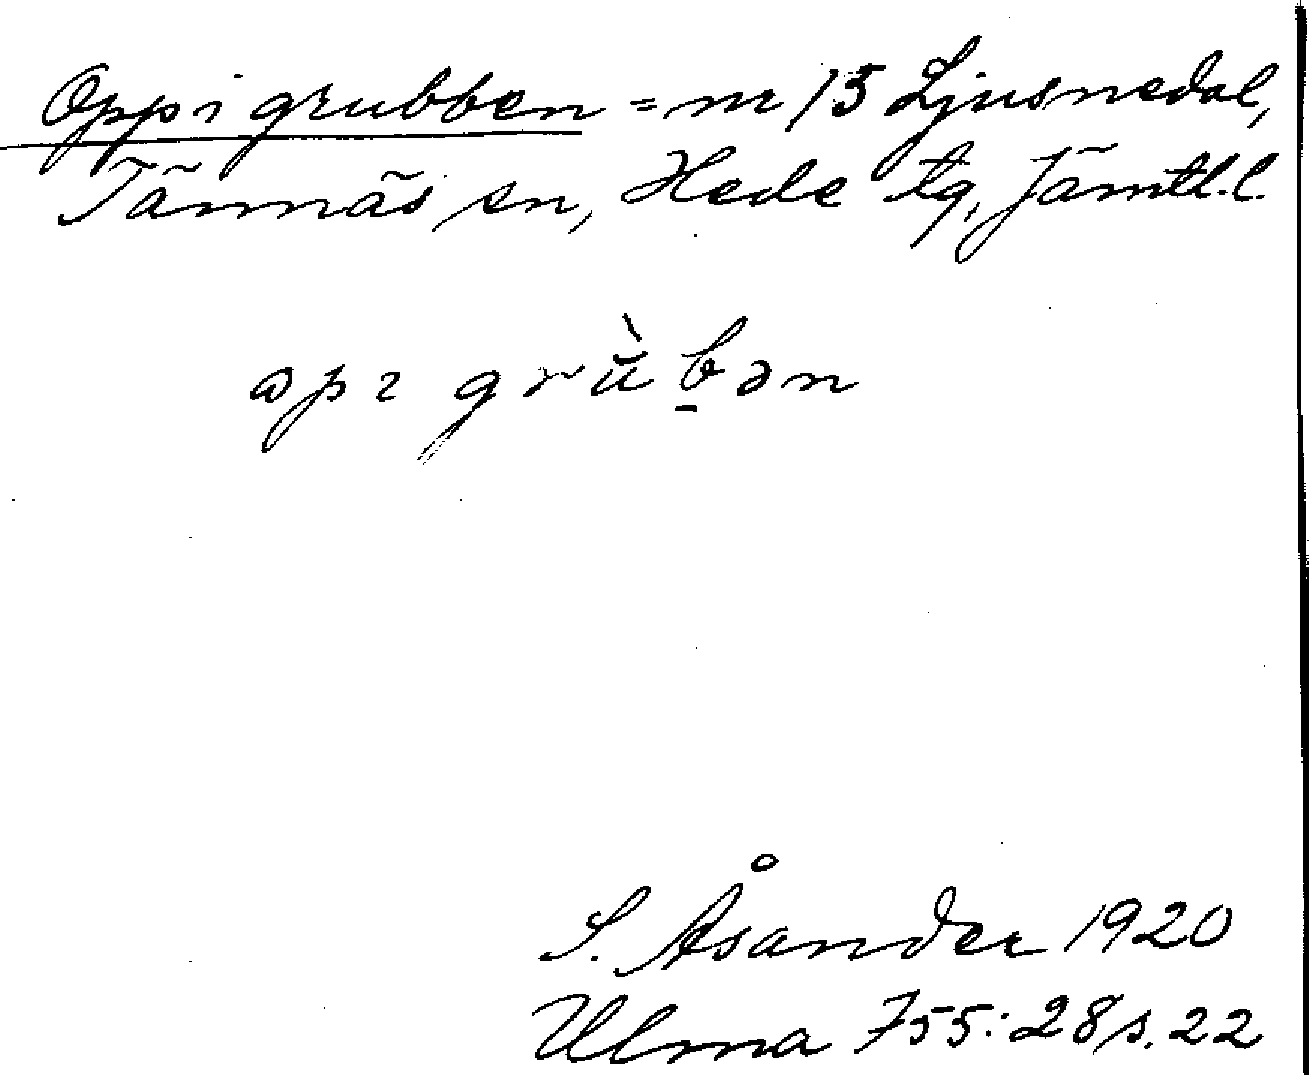 Oppi grubben = nr 15 Ljusnedal,
Tännäs sn, Hede tg, Jämtl. l.
opı grŭ̀b̠ən
S. Åsander 1920
Ulma 755:28 s. 22